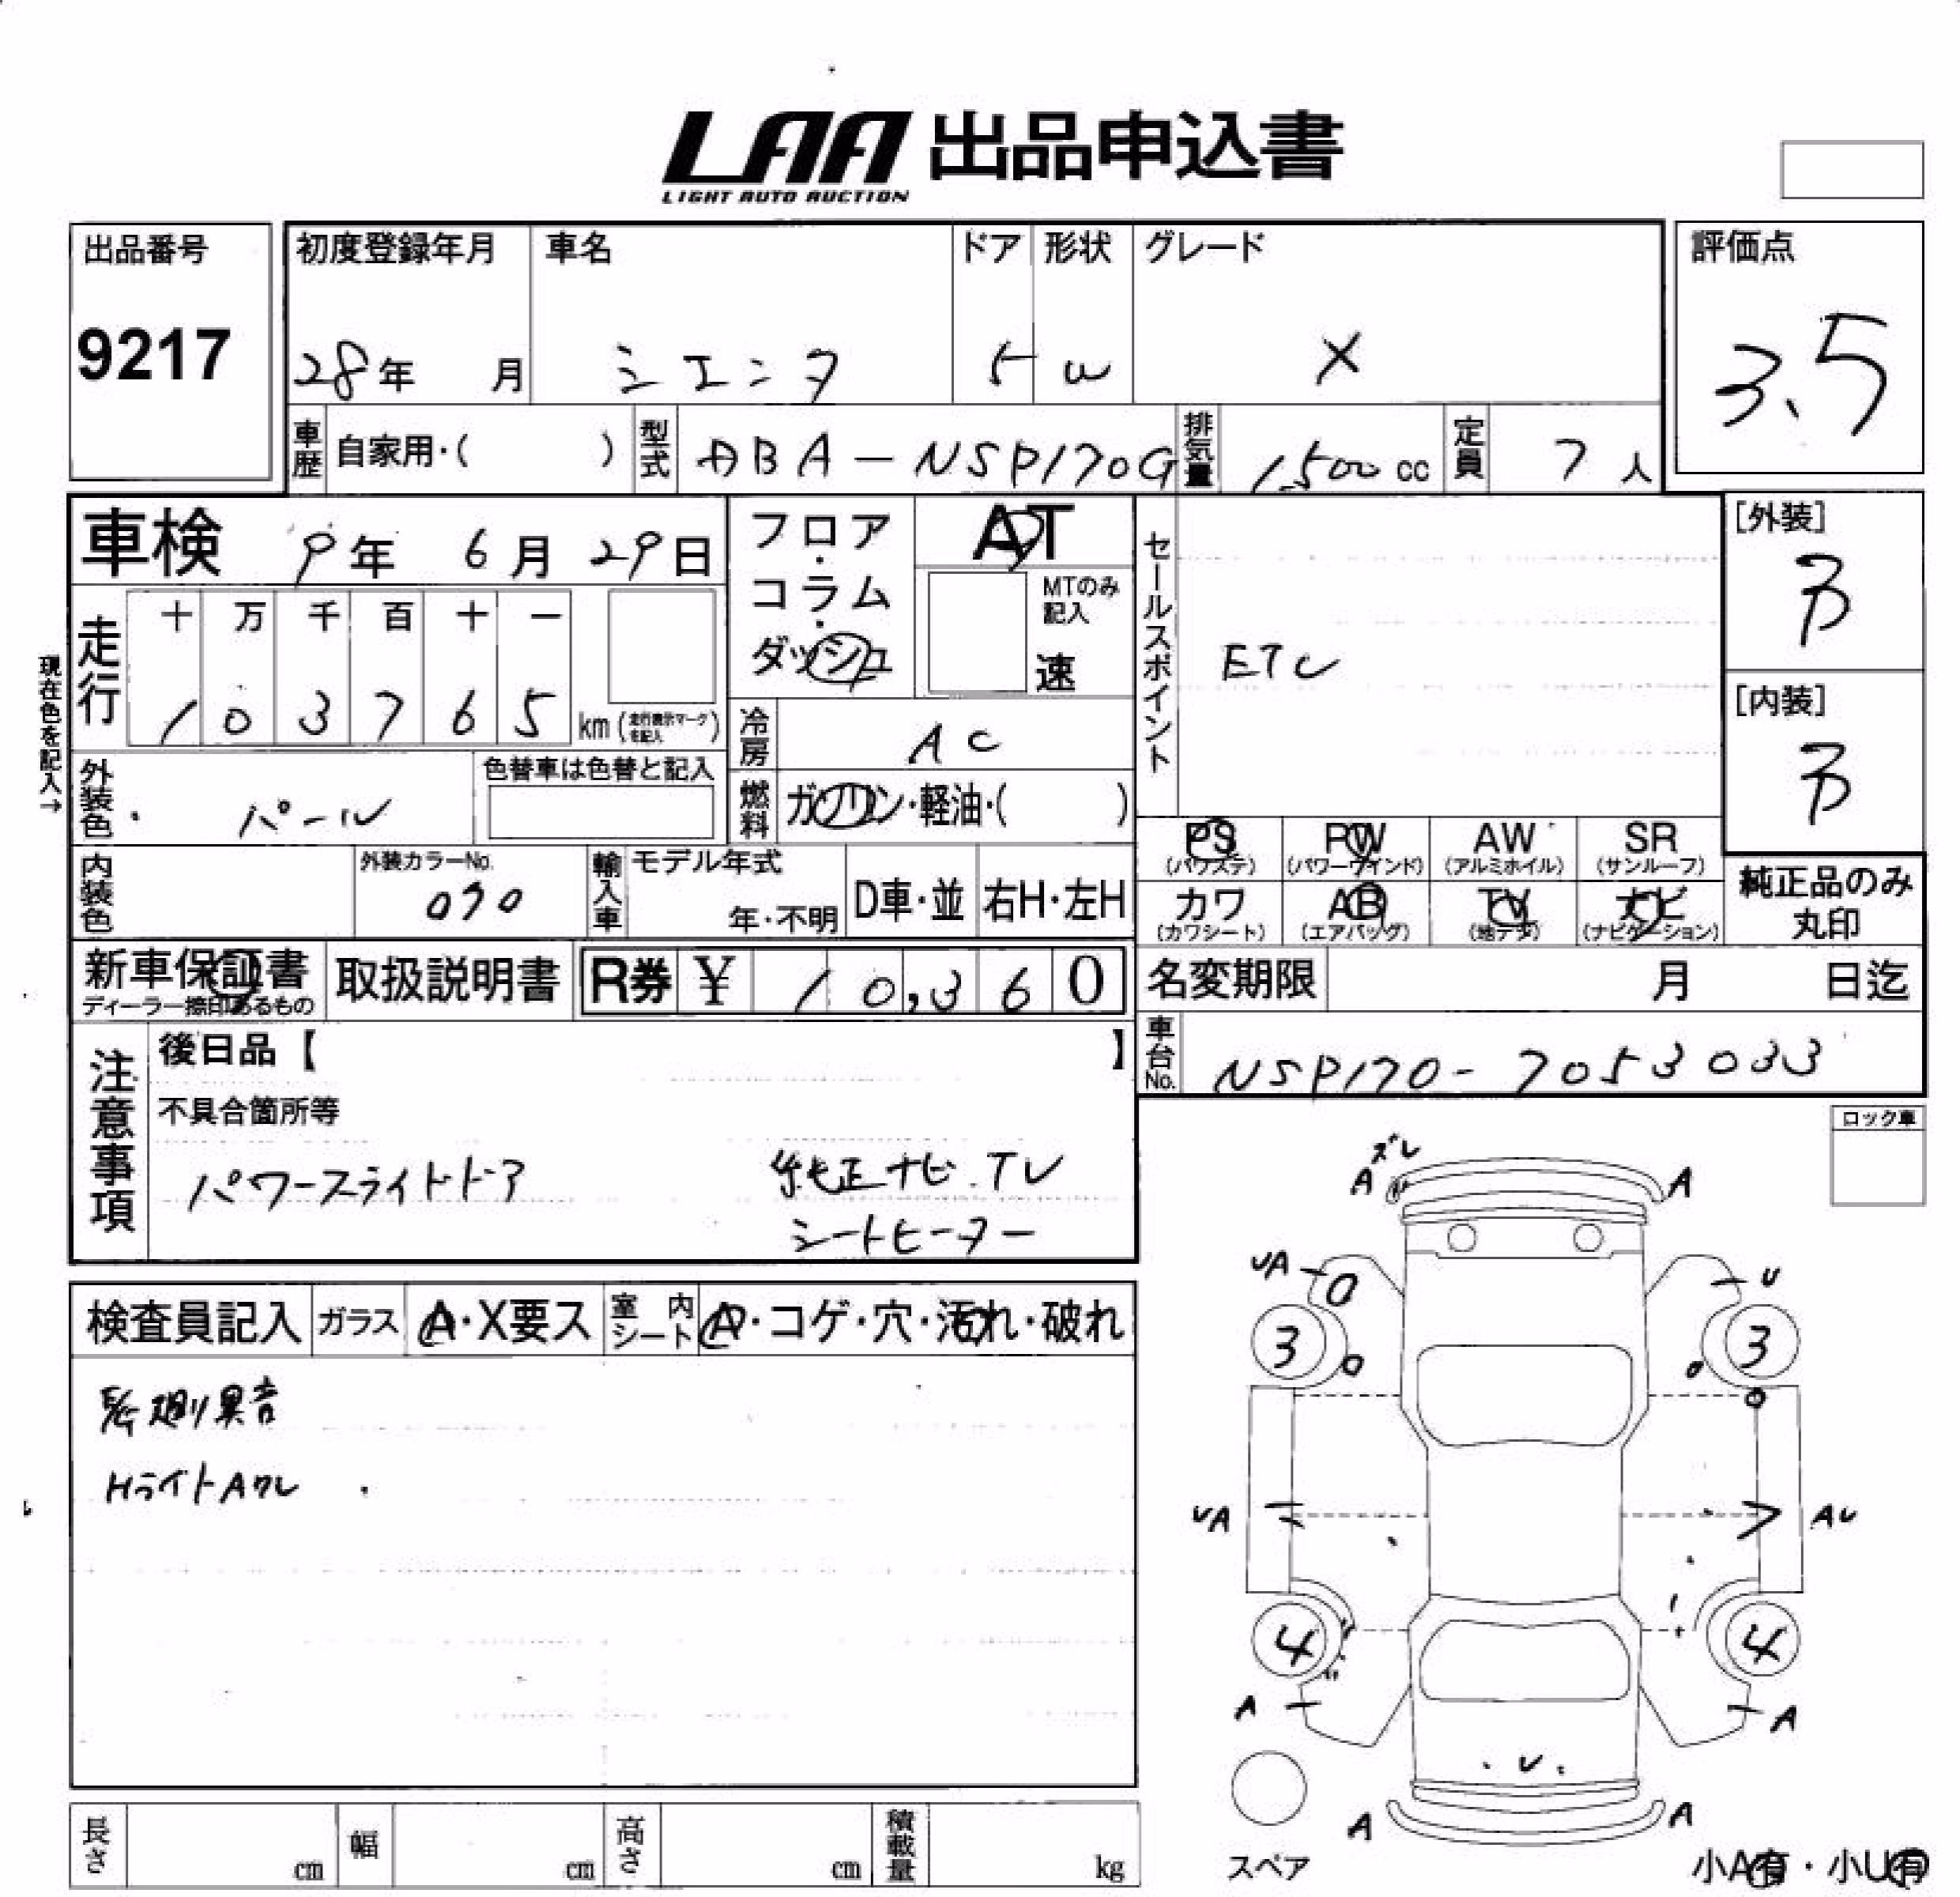 LAA 出品申込書
LIGHT AUTO AUCTION
出品番号
9217
初度登録年月
28年 月
車名
シエンタ
ドア
5
形状
W
グレード
X
評価点
3.5
車歴 自家用・( )
型式 DBA-NSP170G
排気量 1,500 cc
定員 7人
車検 9年 6月 29日
現在色を記入→
走行
十 万 千 百 十 一
1 0 3 7 6 5 km (走行表示マークを記入)
フロア・コラム・ダッシュ
AT
MTのみ記入
速
セールスポイント
ETC
[外装]
B
[内装]
B
外装色 パール
色替車は色替と記入
冷房 AC
燃料 ガソリン・軽油・( )
内装色
外装カラーNo.
070
輸入車
モデル年式
年・不明
D車・並
右H・左H
PS (パワステ)
PW (パワーウインド)
AW (アルミホイル)
SR (サンルーフ)
カワ (カワシート)
AB (エアバッグ)
TV (地デジ)
ナビ (ナビゲーション)
純正品のみ丸印
新車保証書
ディーラー捺印あるもの
取扱説明書
R券 ¥ 10,360
名変期限 月 日迄
車台No. NSP170-7053033
注意事項
後日品【 】
不具合箇所等
パワースライドドア 純正ナビ.TV
シートヒーター
ロック車
検査員記入
ガラス A・X要ス
室内シート A・コゲ・穴・汚れ・破れ
廻り異音
HライトAクレ
ズレ
A A
UA U
3 3
UA AU
4 4
A A
U
A A
スペア
小A有・小U有
長さ cm
幅 cm
高さ cm
積載量 kg